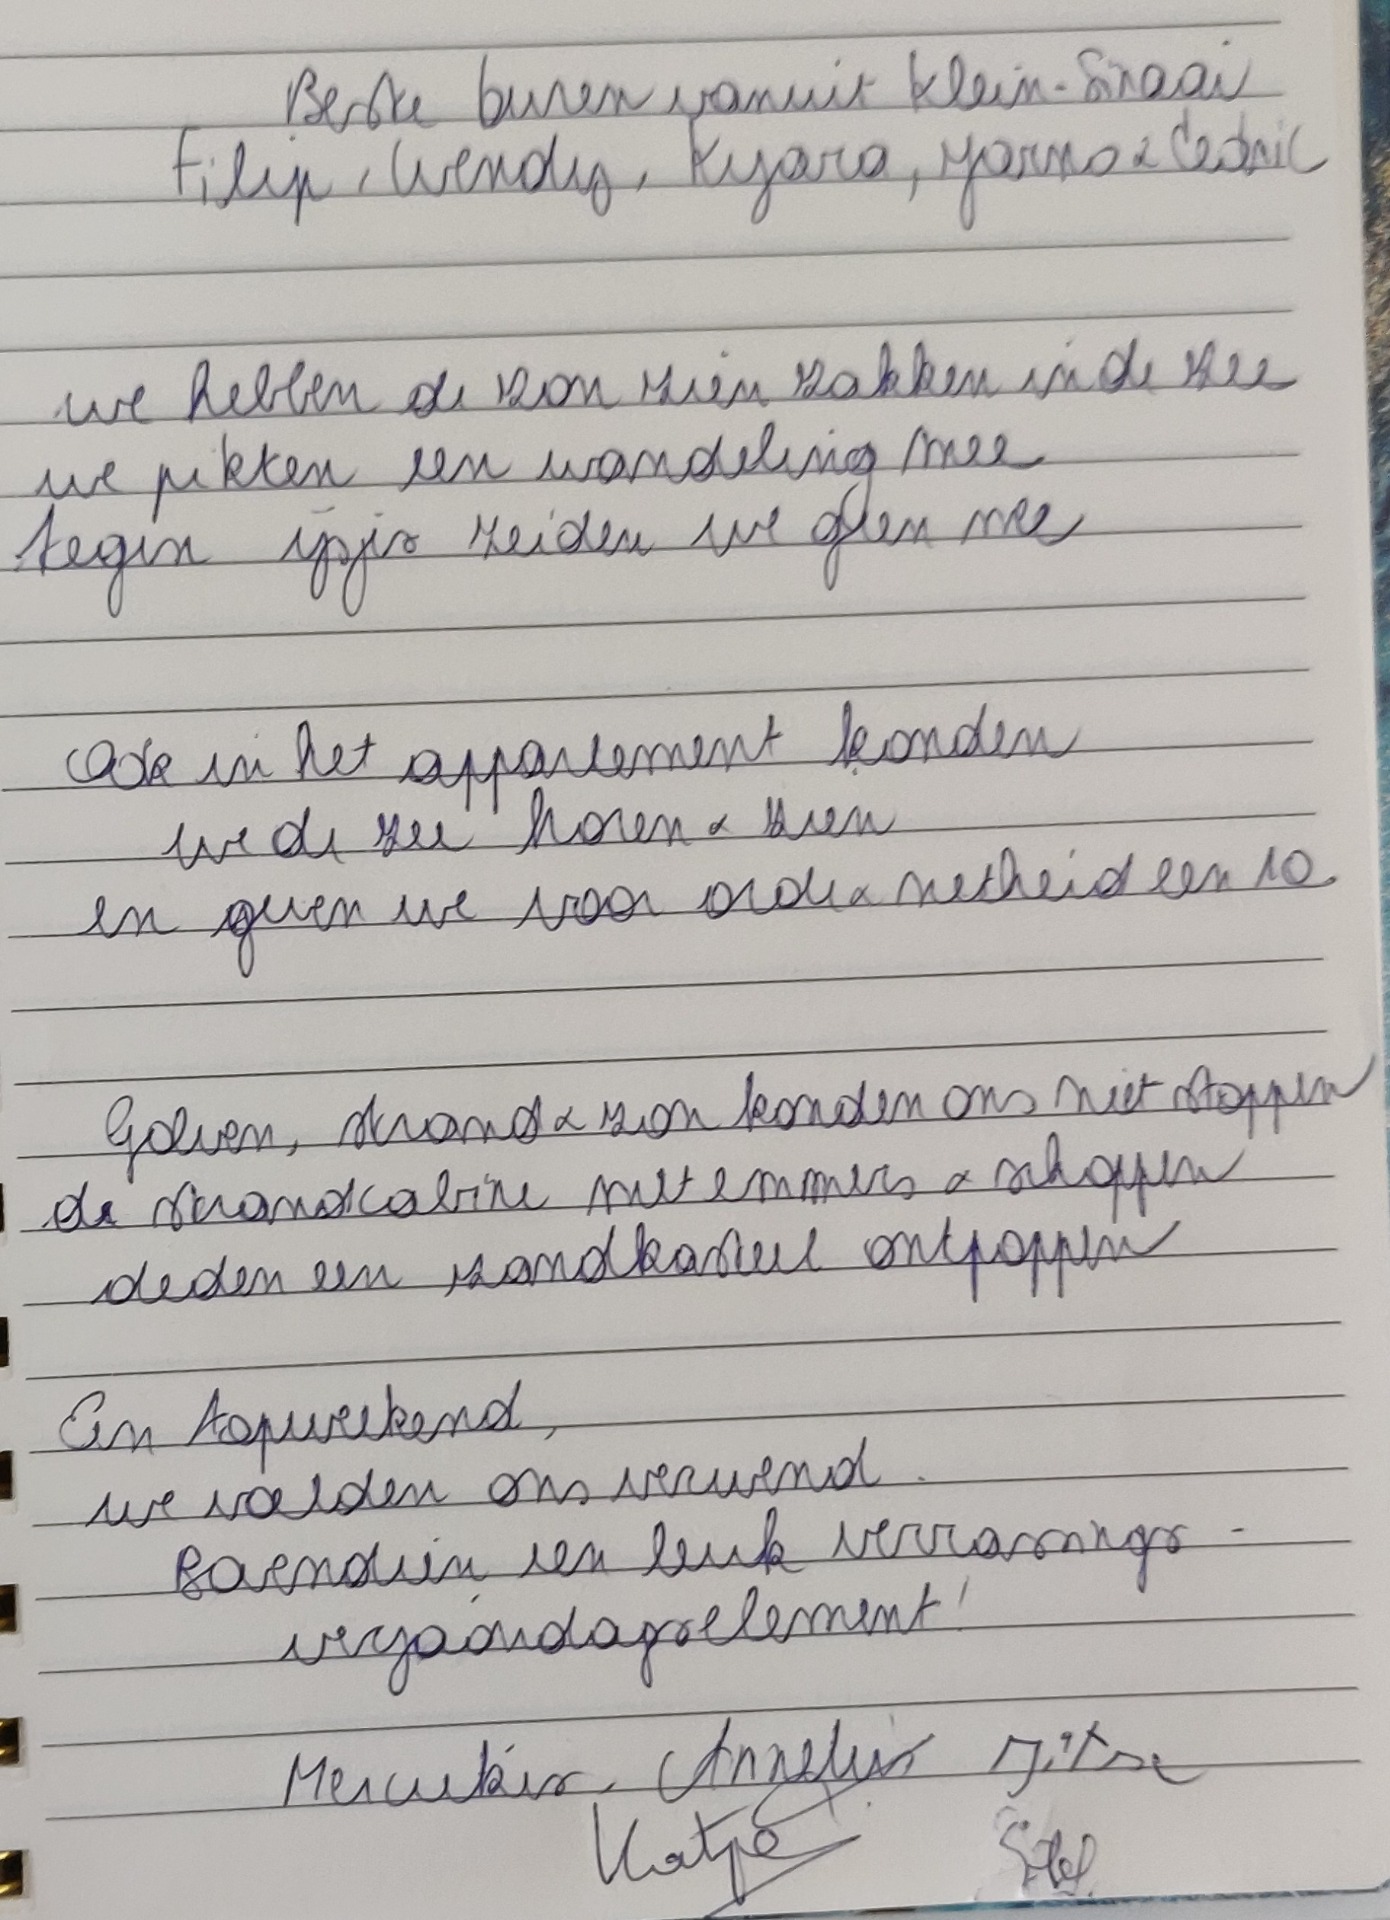 Beste buren vanuit Klein-Sinaai
Filip, Wendy, Kyara, Yarno & Cedric
we hebben de zon zien zakken in de zee
we pikten een wandeling mee
tegen ijsjes zeiden we geen nee
Ook in het appartement konden
we de zee horen & zien
en geven we voor orde & netheid een 10.
Golven, strand & zon konden ons niet stoppen
de strandcabine met emmers & schoppen
deden een zandkasteel ontpoppen
Een topweekend,
we voelden ons verwend.
Bovendien een leuk verrassings-
verjaardagselement!
Mercikes, Annelies
Katja Stef